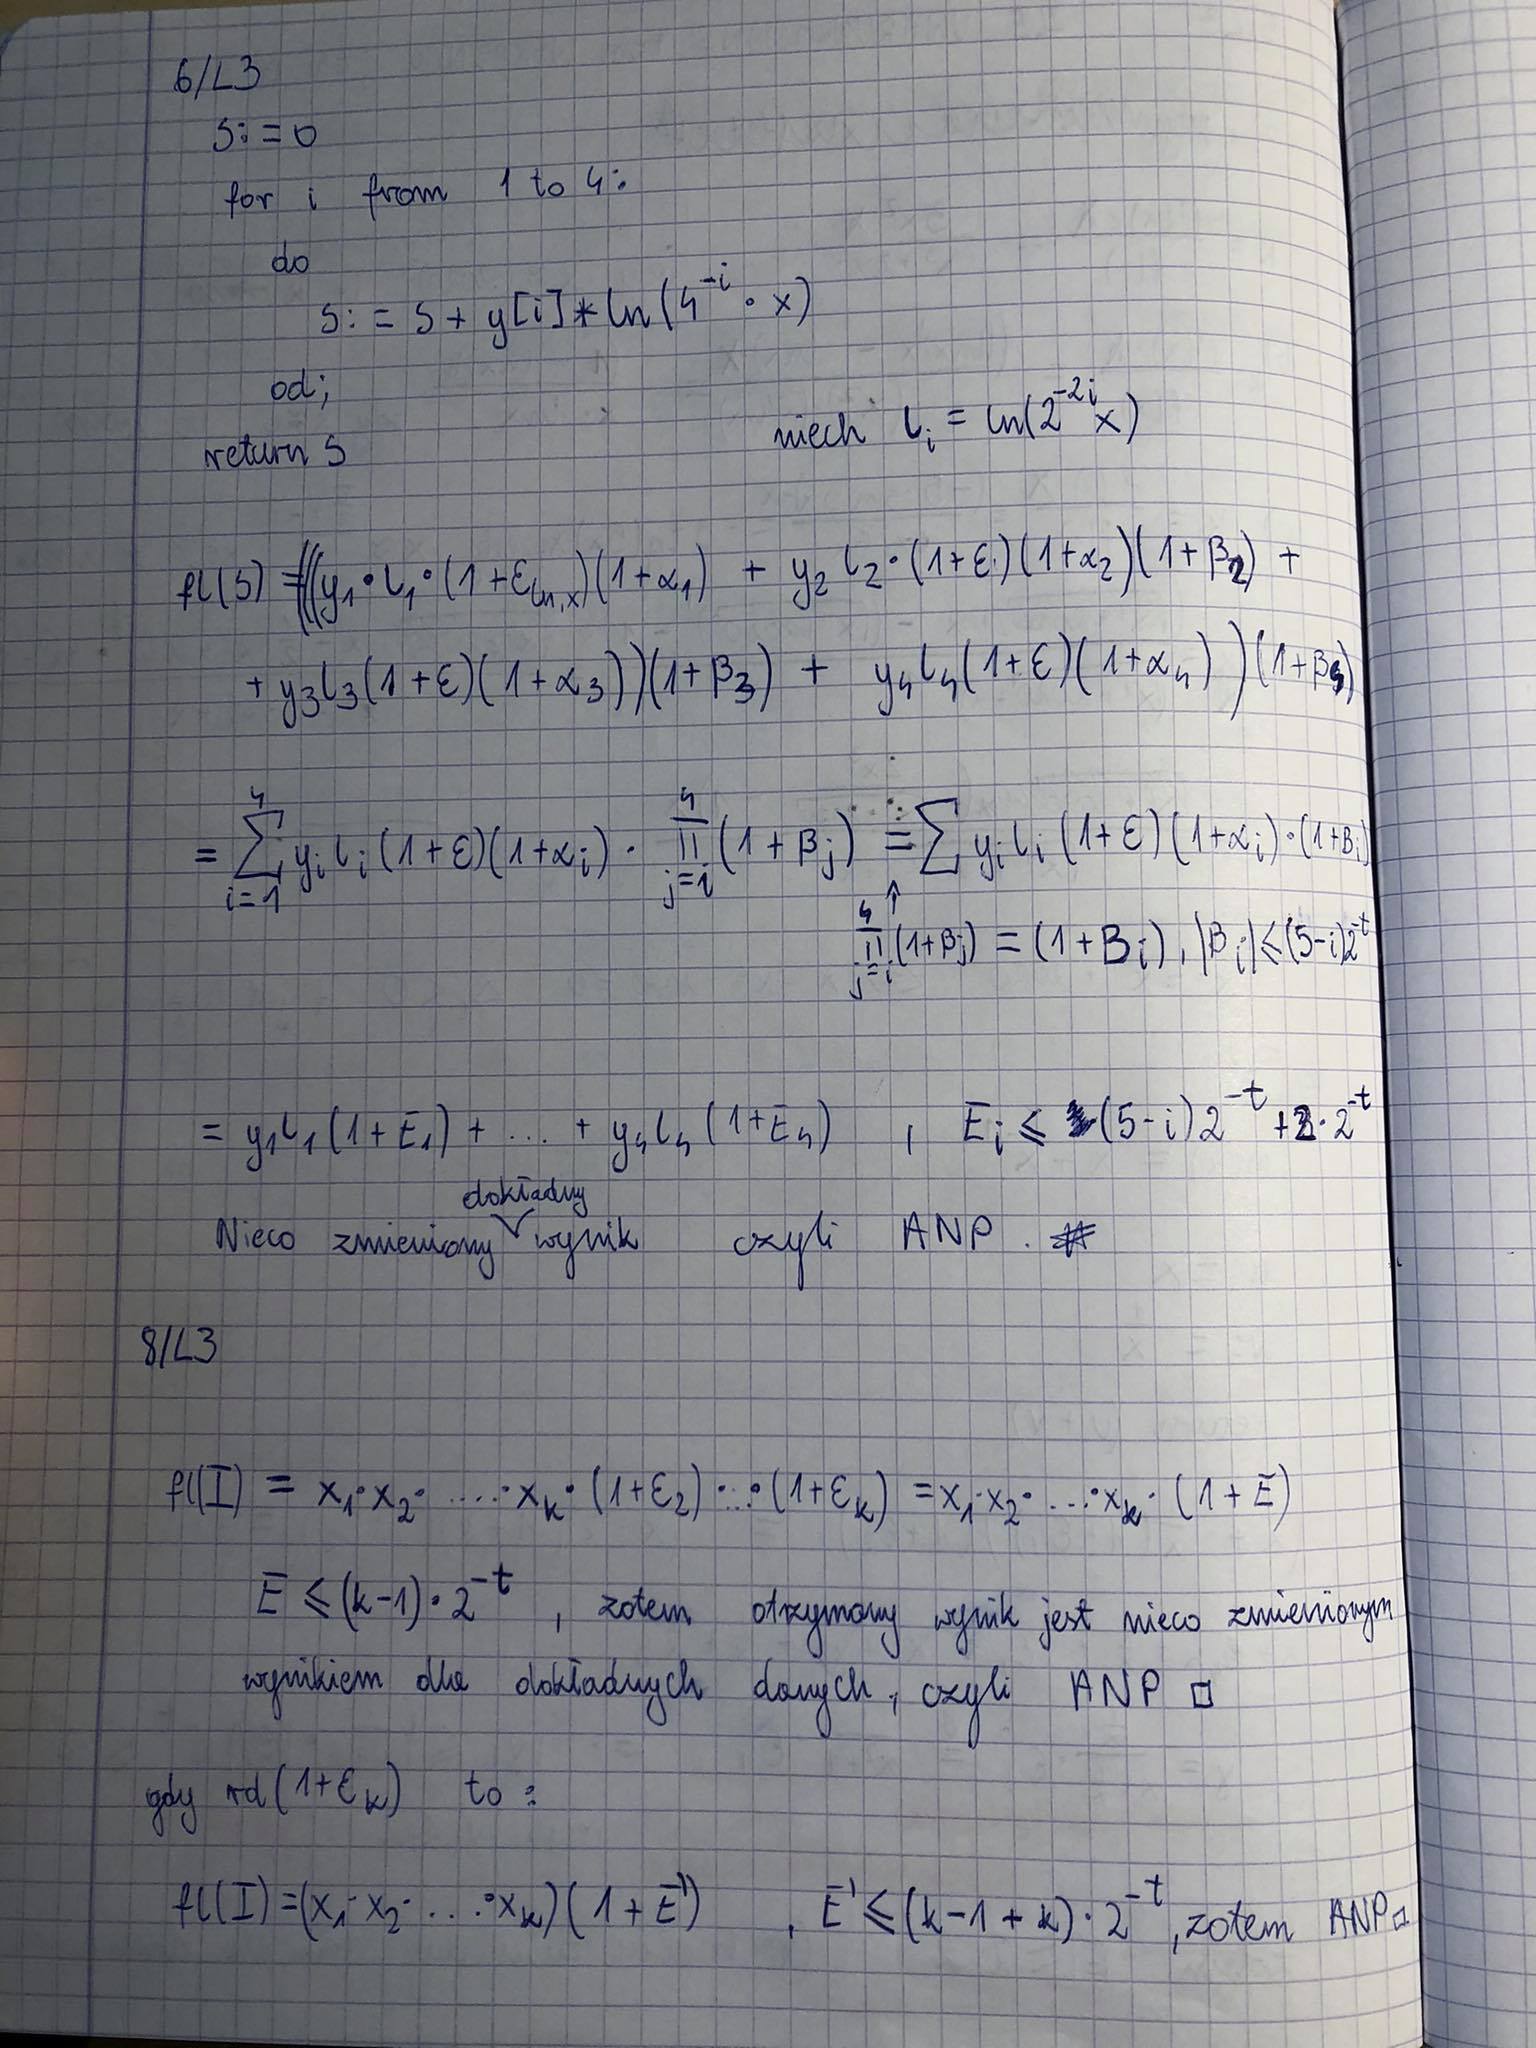 6/L3
S:=0
for i from 1 to 4:
do
S:=S+y[i]*ln(4^{-i}·x)
od;
return S
niech l_i = ln(2^{-2i}x)
fl(S) = (((y_1·l_1·(1+ε_{ln,x})(1+α_1) + y_2 l_2·(1+ε_i)(1+α_2)(1+β_2) +
+ y_3l_3(1+ε)(1+α_3))(1+β_3) + y_4l_4(1+ε)(1+α_4))(1+β_4)
= ∑_{i=1}^{4} y_i l_i (1+ε)(1+α_i) · ∏_{j=i}^{4} (1+β_j) = ∑ y_i l_i (1+ε)(1+α_i)·(1+B_i)
↑
∏_{j=i}^{4}(1+β_j) = (1+B_i), |B_i| ≤ (5-i)2^{-t}
= y_1l_1(1+E_1) + ... + y_4l_4(1+E_4) , E_i ≤ (5-i)2^{-t} + 2·2^{-t}
Nieco zmieniony dokładny wynik czyli ANP. #
8/L3
fl(I) = x_1·x_2· ....·x_k·(1+ε_2)·...·(1+ε_k) = x_1·x_2· ...·x_k·(1+E)
E ≤ (k-1)·2^{-t} , zatem otrzymany wynik jest nieco zmienionym
wynikiem dla dokładnych danych, czyli ANP □
gdy rd(1+ε_k) to:
fl(I)=(x_1·x_2· ...·x_k)(1+E') , E' ≤ (k-1+k)·2^{-t}, zatem ANP□